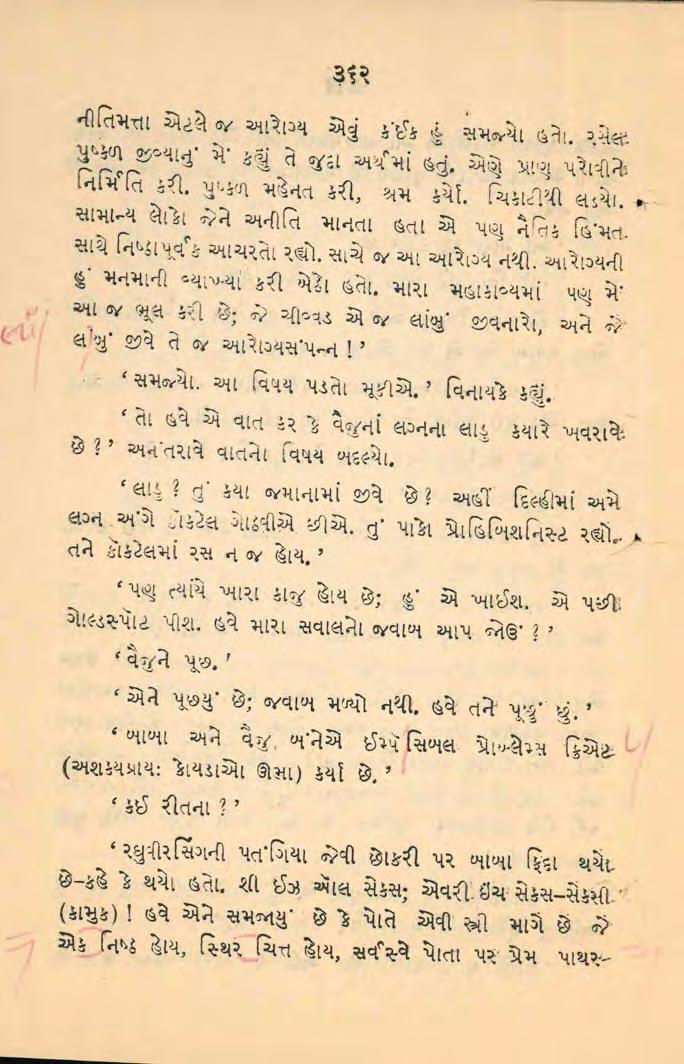 ૩૬૨
નીતિમત્તા એટલે જ આરોગ્ય એવું કંઈક હું સમજ્યો હતો. રસેલ
પુષ્કળ જીવ્યાનું મેં કહ્યું તે જુદા અર્થમાં હતું. એણે પ્રાણ પરોવીને
નિર્મિતિ કરી. પુષ્કળ મહેનત કરી, શ્રમ કર્યો. ચિકાટીથી લડ્યો.
સામાન્ય લોકો જેને અનીતિ માનતા હતા એ પણ નૈતિક હિંમત
સાથે નિષ્ઠાપૂર્વક આચરતો રહ્યો. સાચે જ આ આરોગ્ય નથી. આરોગ્યની
હું મનમાની વ્યાખ્યા કરી બેઠો હતો. મારા મહાકાવ્યમાં પણ મેં
આ જ ભૂલ કરી છે; જે ચીવ્વડ એ જ લાંબું જીવનારો, અને જે
લાંબું જીવે તે જ આરોગ્યસંપન્ન !’
‘સમજ્યો. આ વિષય પડતો મૂકીએ.’ વિનાયકે કહ્યું.
‘તો હવે એ વાત કર કે વૈજુનાં લગ્નના લાડુ ક્યારે ખવરાવે
છે ?’ અનંતરાવે વાતનો વિષય બદલ્યો.
‘લાડુ ? તું કયા જમાનામાં જીવે છે? અહીં દિલ્હીમાં અમે
લગ્ન અંગે કોકટેલ ગોઠવીએ છીએ. તું પાકો પ્રોહિબિશનિસ્ટ રહ્યો.
તને કૉકટેલમાં રસ ન જ હોય.’
‘પણ ત્યાંયે ખારા કાજુ હોય છે; હું એ ખાઈશ. એ પછી
ગોલ્ડસ્પૉટ પીશ. હવે મારા સવાલનો જવાબ આપ જોઉં ?’
‘વૈજુને પૂછ.’
‘એને પૂછ્યું છે; જવાબ મળ્યો નથી. હવે તને પૂછું છું.’
‘બાબા અને વૈજુ, બંનેએ ઈમ્પૉસિબલ પ્રોબ્લેમ્સ ક્રિએટ
(અશક્યપ્રાય: કોયડાઓ ઊભા) કર્યા છે.’
‘કઈ રીતના ?’
‘રઘુવીરસિંગની પતંગિયા જેવી છોકરી પર બાબા ફિદા થયો
છે–કહે કે થયો હતો. શી ઈઝ ઑલ સેકસ; એવરી ઇંચ સેકસ–સેકસી
(કામુક) ! હવે એને સમજાયું છે કે પોતે એવી સ્ત્રી માગે છે જે
એક નિષ્ઠ હોય, સ્થિર ચિત્ત હોય, સર્વસ્વે પોતા પર પ્રેમ પાથર–